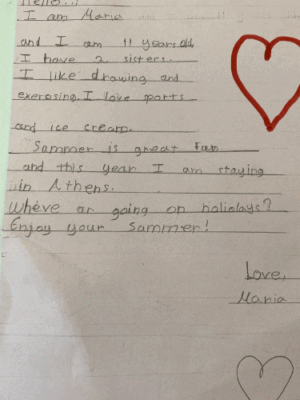 Hello...
I am Maria
and I am 11 years old
I have 2 sisters.
I like drawing and
exerosing. I love ports
and ice cream.
Sammer is great fan
and this year I am staying
in Athens.
Wheve ar going on holidays?
Enjoy your Sammer!
Love,
Maria